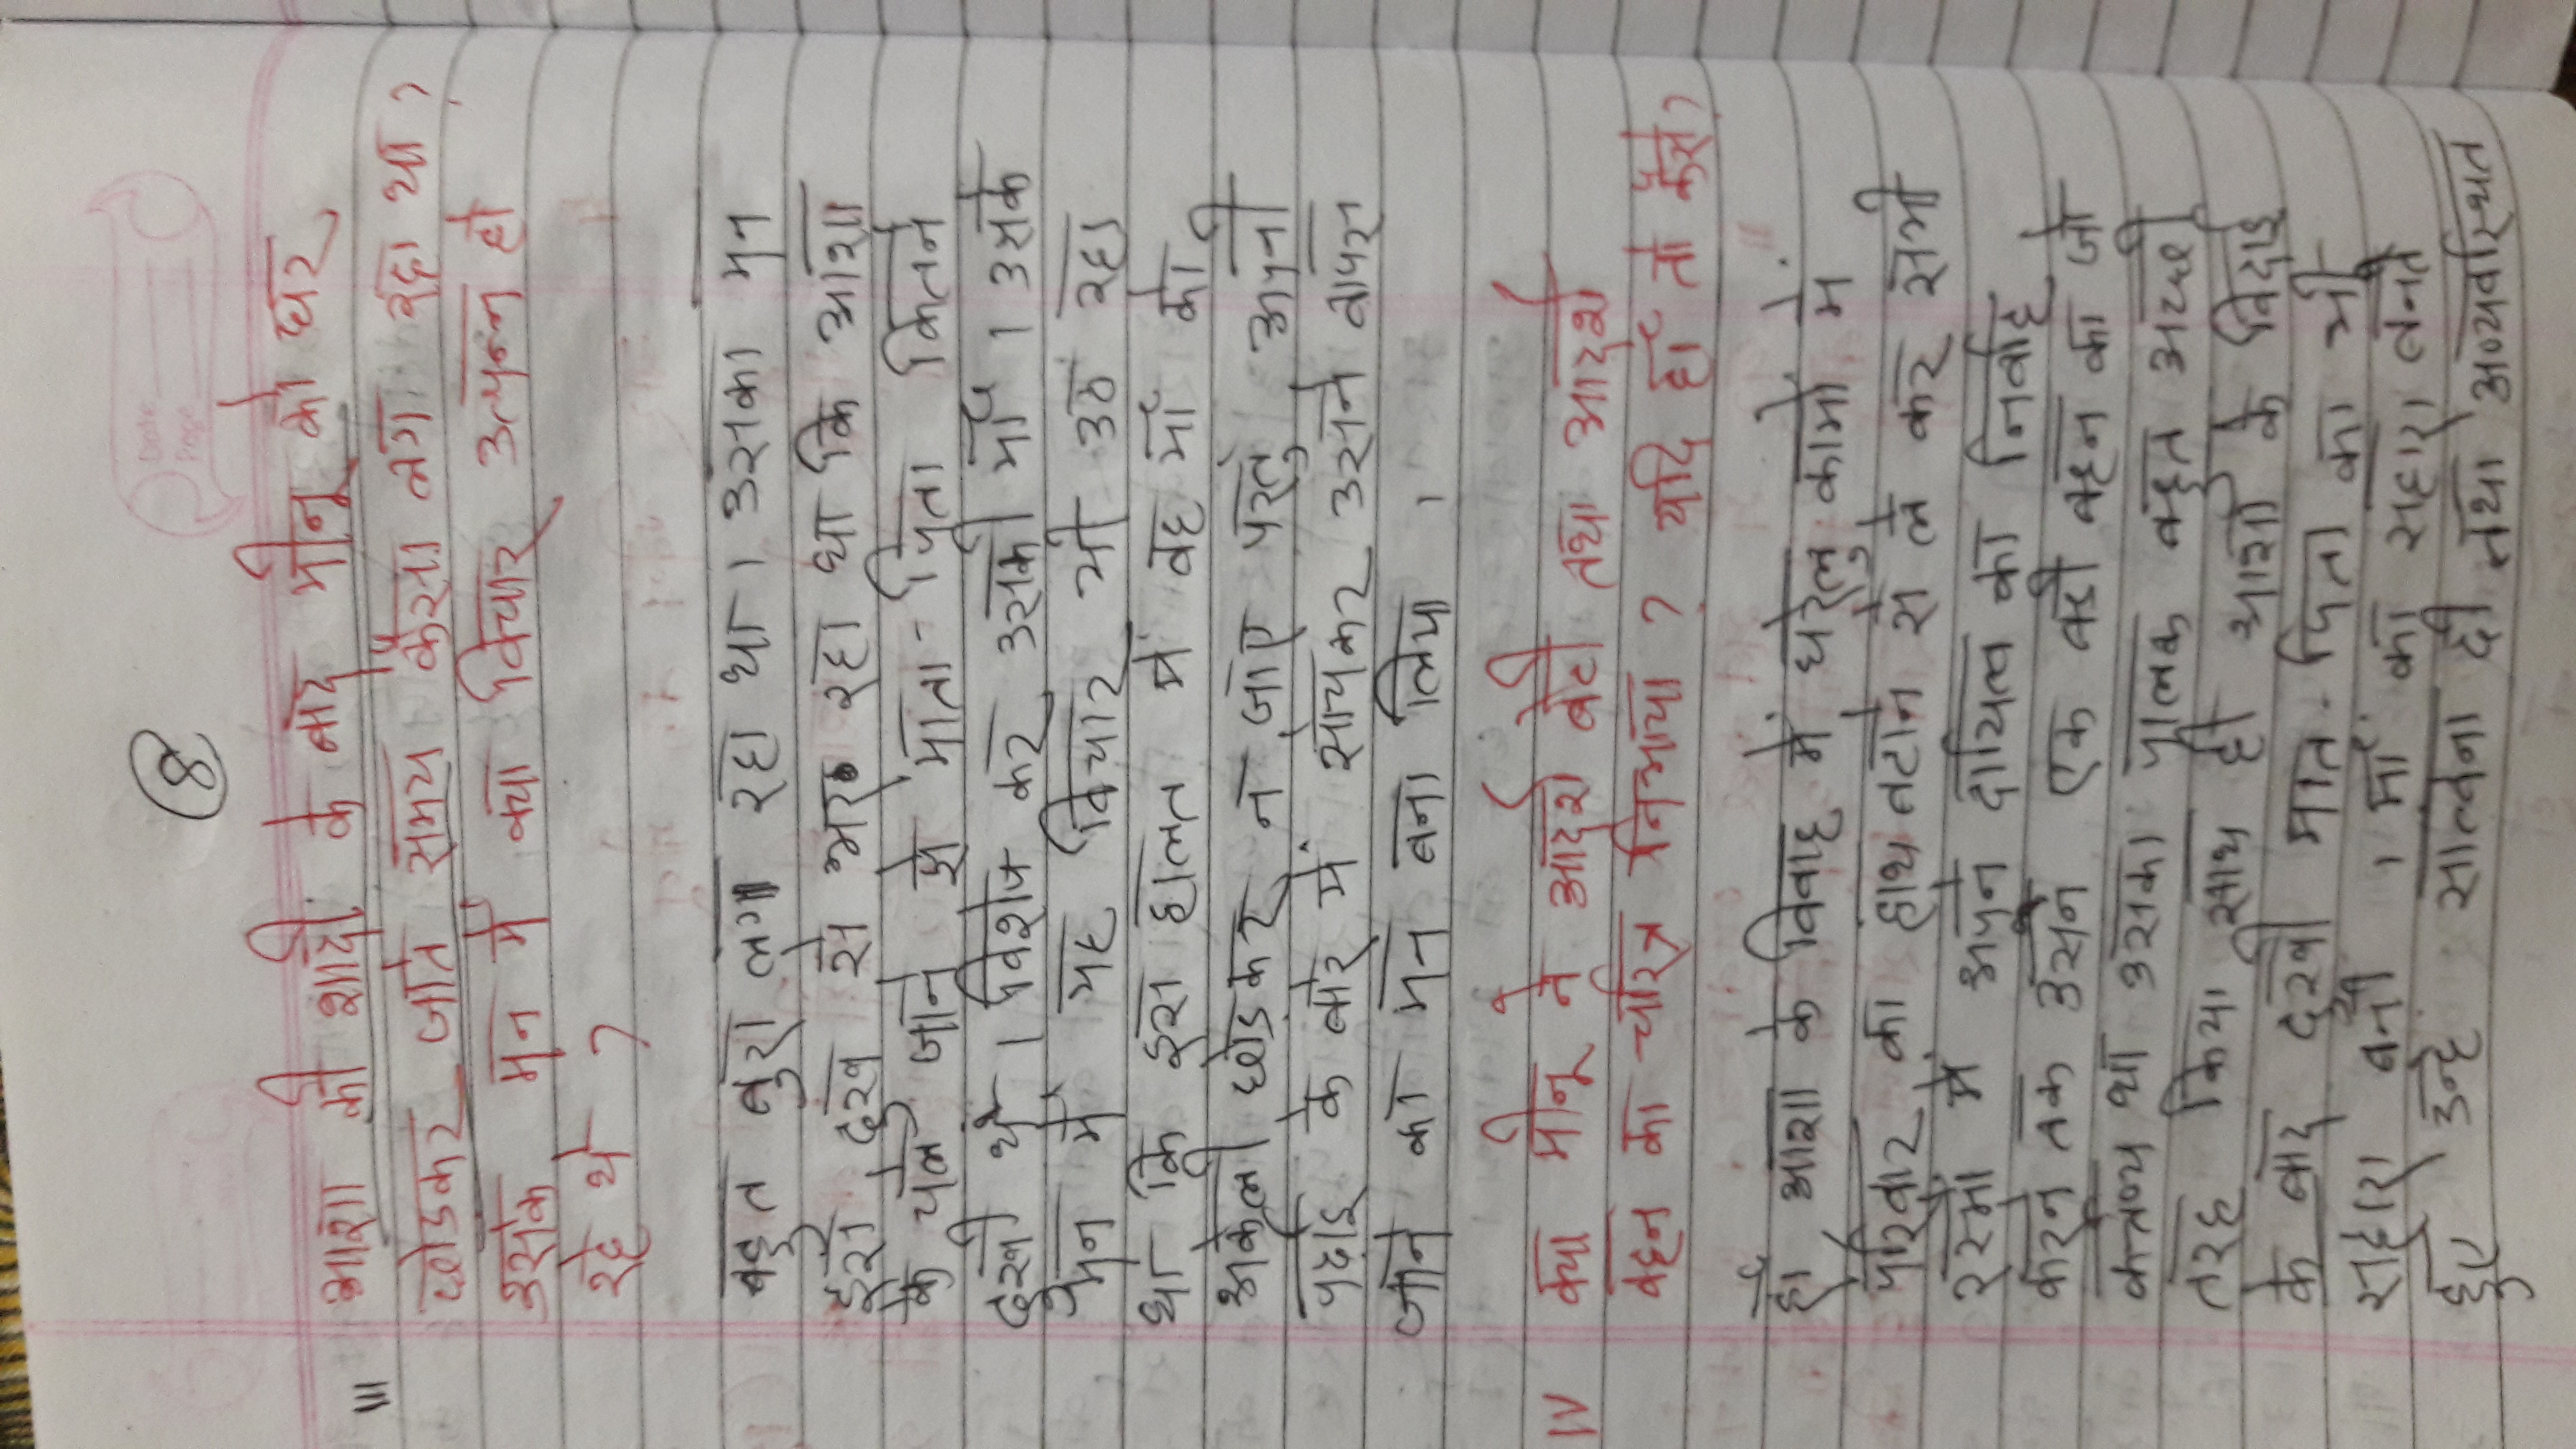 8
Date
Page
III आशा की शादी के बाद मीनू को घर
छोडकर जाते समय कैसा लग रहा था ?
उसके मन में क्या विचार उत्पन्न हो
रहे थे ?
बहुत बुरा लगा रहा था । उसका मन
इस दुख से भर रहा था कि आशा
के चले जाने से माता - पिता कितने
दुखी थे । विशेष कर उसकी माँ । उसके
मन में यह विचार भी उठ रहा
था कि इस हालत में वह माँ को
अकेला छोडकर न जाए परंतु अपनी
पढाई के बारे में सोचकर उसने वापस
जाने का मन बना लिया ।
IV क्या मीनू ने आदर्श बेटी तथा आदर्श
बहन का चरित्र निभाया ? यदि हाँ तो कैसे ?
हाँ आशा के विवाह में घरेलु कामों में
परिवार का हाथ बटाने से ले कर सभी
रस्मों में अपने दायित्व का निर्वाह
करने तक उसने एक बडी बहन का जो
कर्तव्य था उसका पालक बहुत अच्छी
तरह किया साथ ही आशा के विदाई
के बाद दुखी माता पिता का भी
सहारा बनी । माँ का सहारा बनते
हुए उन्हे सात्वना दी तथा अव्यवस्थित